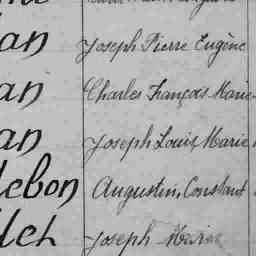 an Joseph Pierre Eugène
an Charles François Marie
an Joseph Louis Marie
lebon Augustin, Constant
Joseph